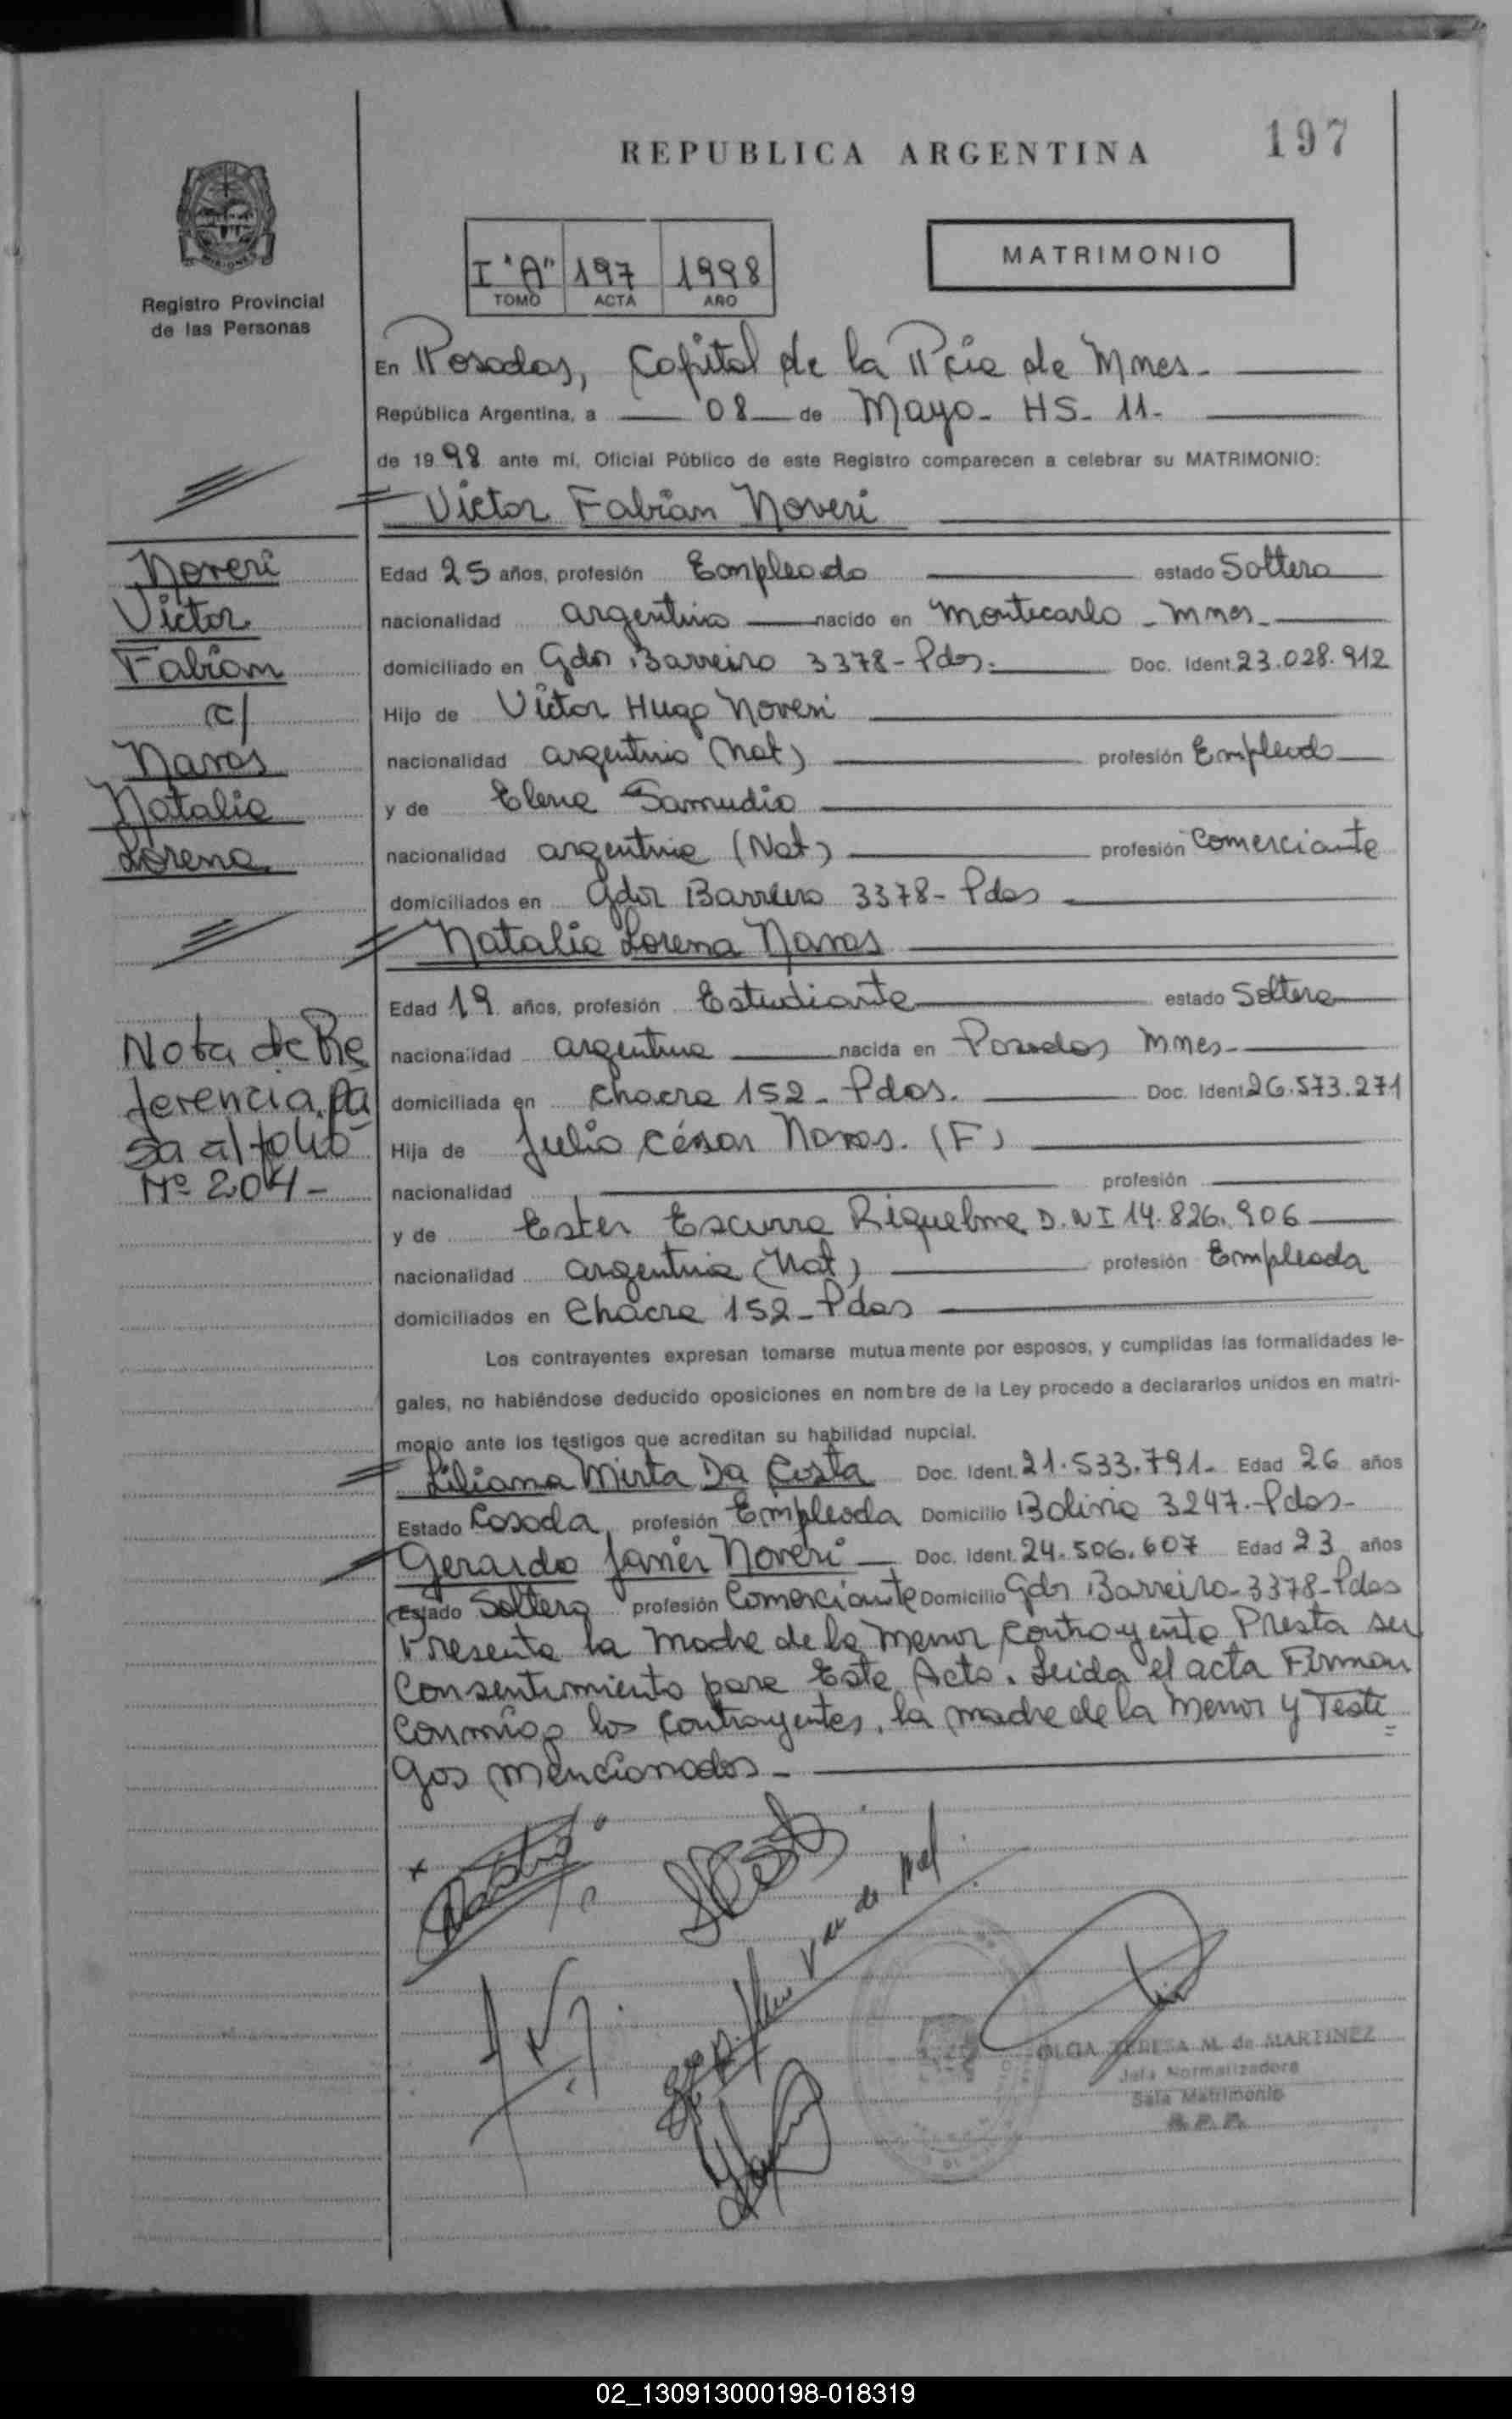 REPUBLICA ARGENTINA
197
Registro Provincial
de las Personas
I "A" 197 1998
TOMO ACTA AÑO
MATRIMONIO
En Posadas, Capital de la Pcia de Mnes.
República Argentina, a 08 de Mayo - HS - 11 -
de 1998 ante mí, Oficial Público de este Registro comparecen a celebrar su MATRIMONIO:
Victor Fabián Noveri
Noveri
Victor
Fabián
c/
Navos
Natalia
Lorena
Edad 25 años, profesión Empleado estado Soltero
nacionalidad argentino nacido en Montecarlo - Mnes -
domiciliado en Gdor Barreiro 3378 - Pdas. Doc. Ident. 23.028.912
Hijo de Victor Hugo Noveri
nacionalidad argentino (Nat) profesión Empleado
y de Elena Samudio
nacionalidad argentina (Nat) profesión Comerciante
domiciliados en Gdor Barreiro 3378 - Pdas
Natalia Lorena Navos
Edad 19 años, profesión Estudiante estado Soltera
nacionalidad argentina nacida en Posadas Mnes -
domiciliada en Chacra 152 - Pdas. Doc. Ident. 26.573.271
Hija de Julio César Navos. (F)
nacionalidad profesión
y de Ester Escurra Riquelme D.N.I 14.826.906
nacionalidad argentina (Nat) profesión Empleada
domiciliados en Chacra 152 - Pdas
Nota de Re
ferencia, Pa
sa al folio
Nº 204 -
Los contrayentes expresan tomarse mutuamente por esposos, y cumplidas las formalidades le-
gales, no habiéndose deducido oposiciones en nombre de la Ley procedo a declararlos unidos en matri-
monio ante los testigos que acreditan su habilidad nupcial.
Liliana Mirta Da Costa Doc. Ident. 21.533.791 - Edad 26 años
Estado Casada, profesión Empleada Domicilio Bolivia 3247 - Pdas -
Gerardo Javier Noveri Doc. Ident. 24.506.607 Edad 23 años
Estado Soltero profesión Comerciante Domicilio Gdor Barreiro - 3378 - Pdas
Presente la Madre de la Menor contrayente Presta su
Consentimiento para Este Acto. Leida el acta Firman
conmigo los contrayentes, la madre de la Menor y Testi
gos mencionados -
OLGA TERESA M. de MARTINEZ
Jefa Normalizadora
Sala Matrimonio
02_130913000198-018319